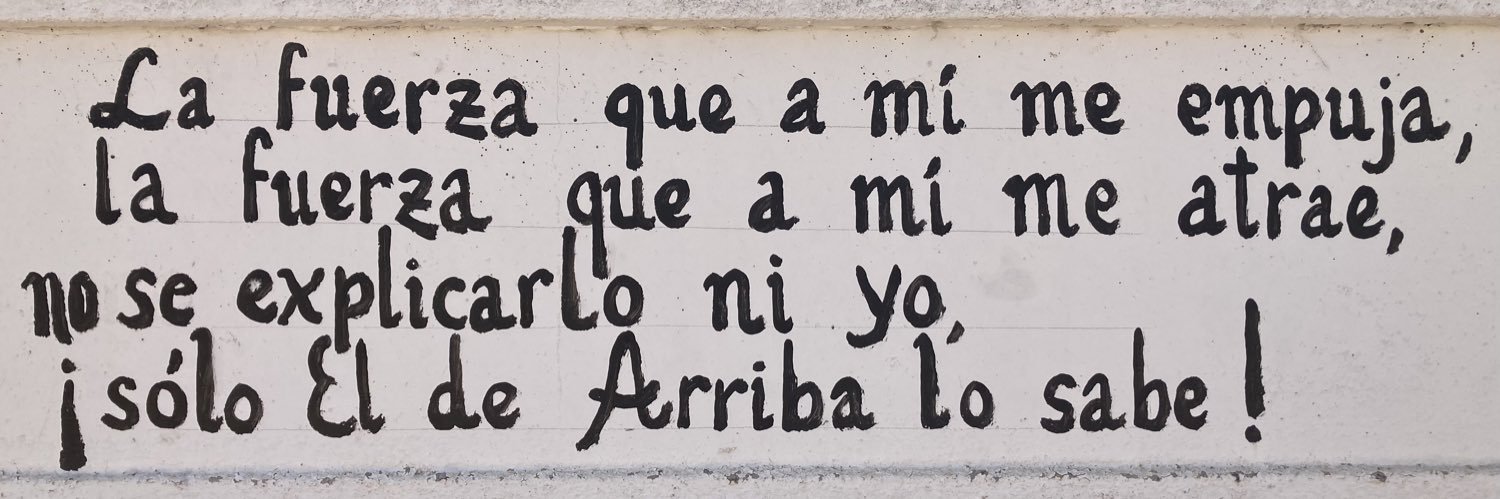 La fuerza que a mí me empuja,
la fuerza que a mí me atrae,
no se explicarlo ni yo,
¡sólo El de Arriba lo sabe!